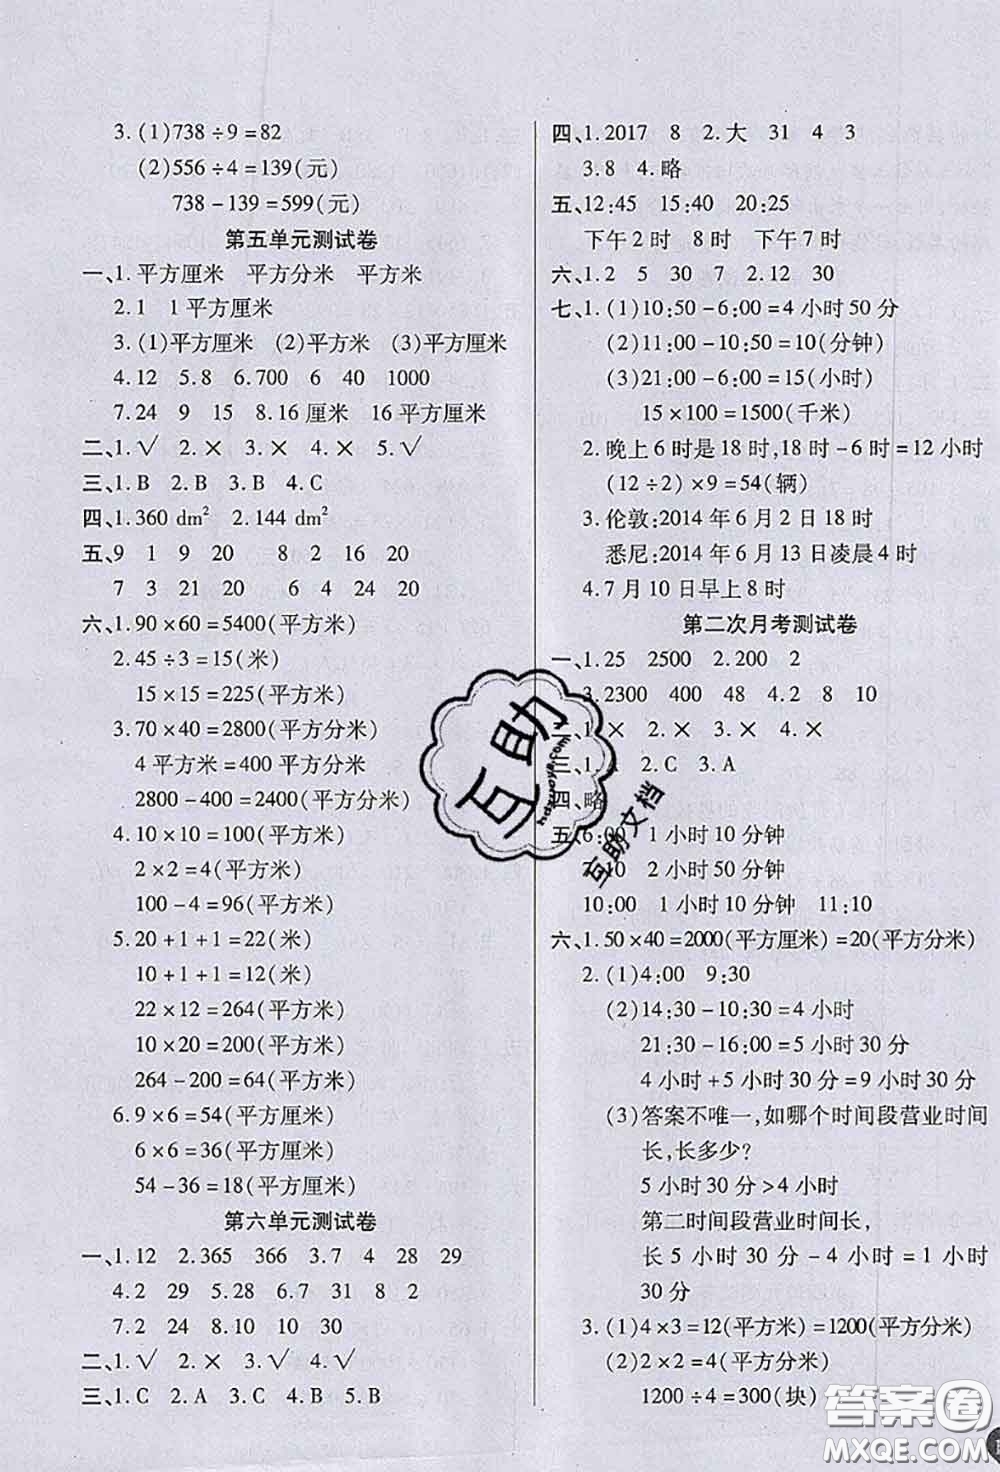 3. (1)738÷9=82
(2)556÷4=139(元)
738-139=599(元)
第五单元测试卷
一、1.平方厘米 平方分米 平方米
2.1 1平方厘米
3.(1)平方厘米 (2)平方米 (3)平方厘米
4.12 5.8 6.700 6 40 1000
7.24 9 15 8.16厘米 16平方厘米
二、1.√ 2.× 3.× 4.× 5.√
三、1.B 2.B 3.B 4.C
四、1.360 dm² 2.144 dm²
五、9 1 9 20 8 2 16 20
7 3 21 20 6 4 24 20
六、1.90×60=5400(平方米)
2.45÷3=15(米)
15×15=225(平方米)
3.70×40=2800(平方分米)
4平方米=400平方分米
2800-400=2400(平方分米)
4.10×10=100(平方米)
2×2=4(平方米)
100-4=96(平方米)
5.20+1+1=22(米)
10+1+1=12(米)
22×12=264(平方米)
10×20=200(平方米)
264-200=64(平方米)
6.9×6=54(平方厘米)
6×6=36(平方厘米)
54-36=18(平方厘米)
第六单元测试卷
一、1.12 2.365 366 3.7 4 28 29
4.2 29 5.28 6.7 31 8 2
7.2 24 8.10 10 30
二、1.√ 2.× 3.√ 4.√
三、1.C 2.A 3.C 4.B 5.B
四、1.2017 8 2.大 31 4 3
3.8 4.略
五、12:45 15:40 20:25
下午2时 8时 下午7时
六、1.2 5 30 7 2.12 30
七、1.(1)10:50-6:00=4小时50分
(2)11:00-10:50=10(分钟)
(3)21:00-6:00=15(小时)
15×100=1500(千米)
2.晚上6时是18时,18时-6时=12小时
(12÷2)×9=54(辆)
3.伦敦:2014年6月2日18时
悉尼:2014年6月13日凌晨4时
4.7月10日早上8时
第二次月考测试卷
一、1.25 2500 2.200 2
3.2300 400 48 4.2 8 10
1.× 2.× 3.× 4.×
三、1.A 2.C 3.A
四、略
五、6:00 1小时10分钟
7:10 2小时50分钟
10:00 1小时10分钟 11:10
六、1.50×40=2000(平方厘米)=20(平方分米)
2.(1)4:00 9:30
(2)14:30-10:30=4小时
21:30-16:00=5小时30分
4小时+5小时30分=9小时30分
(3)答案不唯一,如哪个时间段营业时间
长,长多少?
5小时30分>4小时
第二时间段营业时间长,
长5小时30分-4小时=1小时
30分
3.(1)4×3=12(平方米)=1200(平方分米)
(2)2×2=4(平方分米)
1200÷4=300(块)
互助
互助文档
答案圈
MXQE.COM